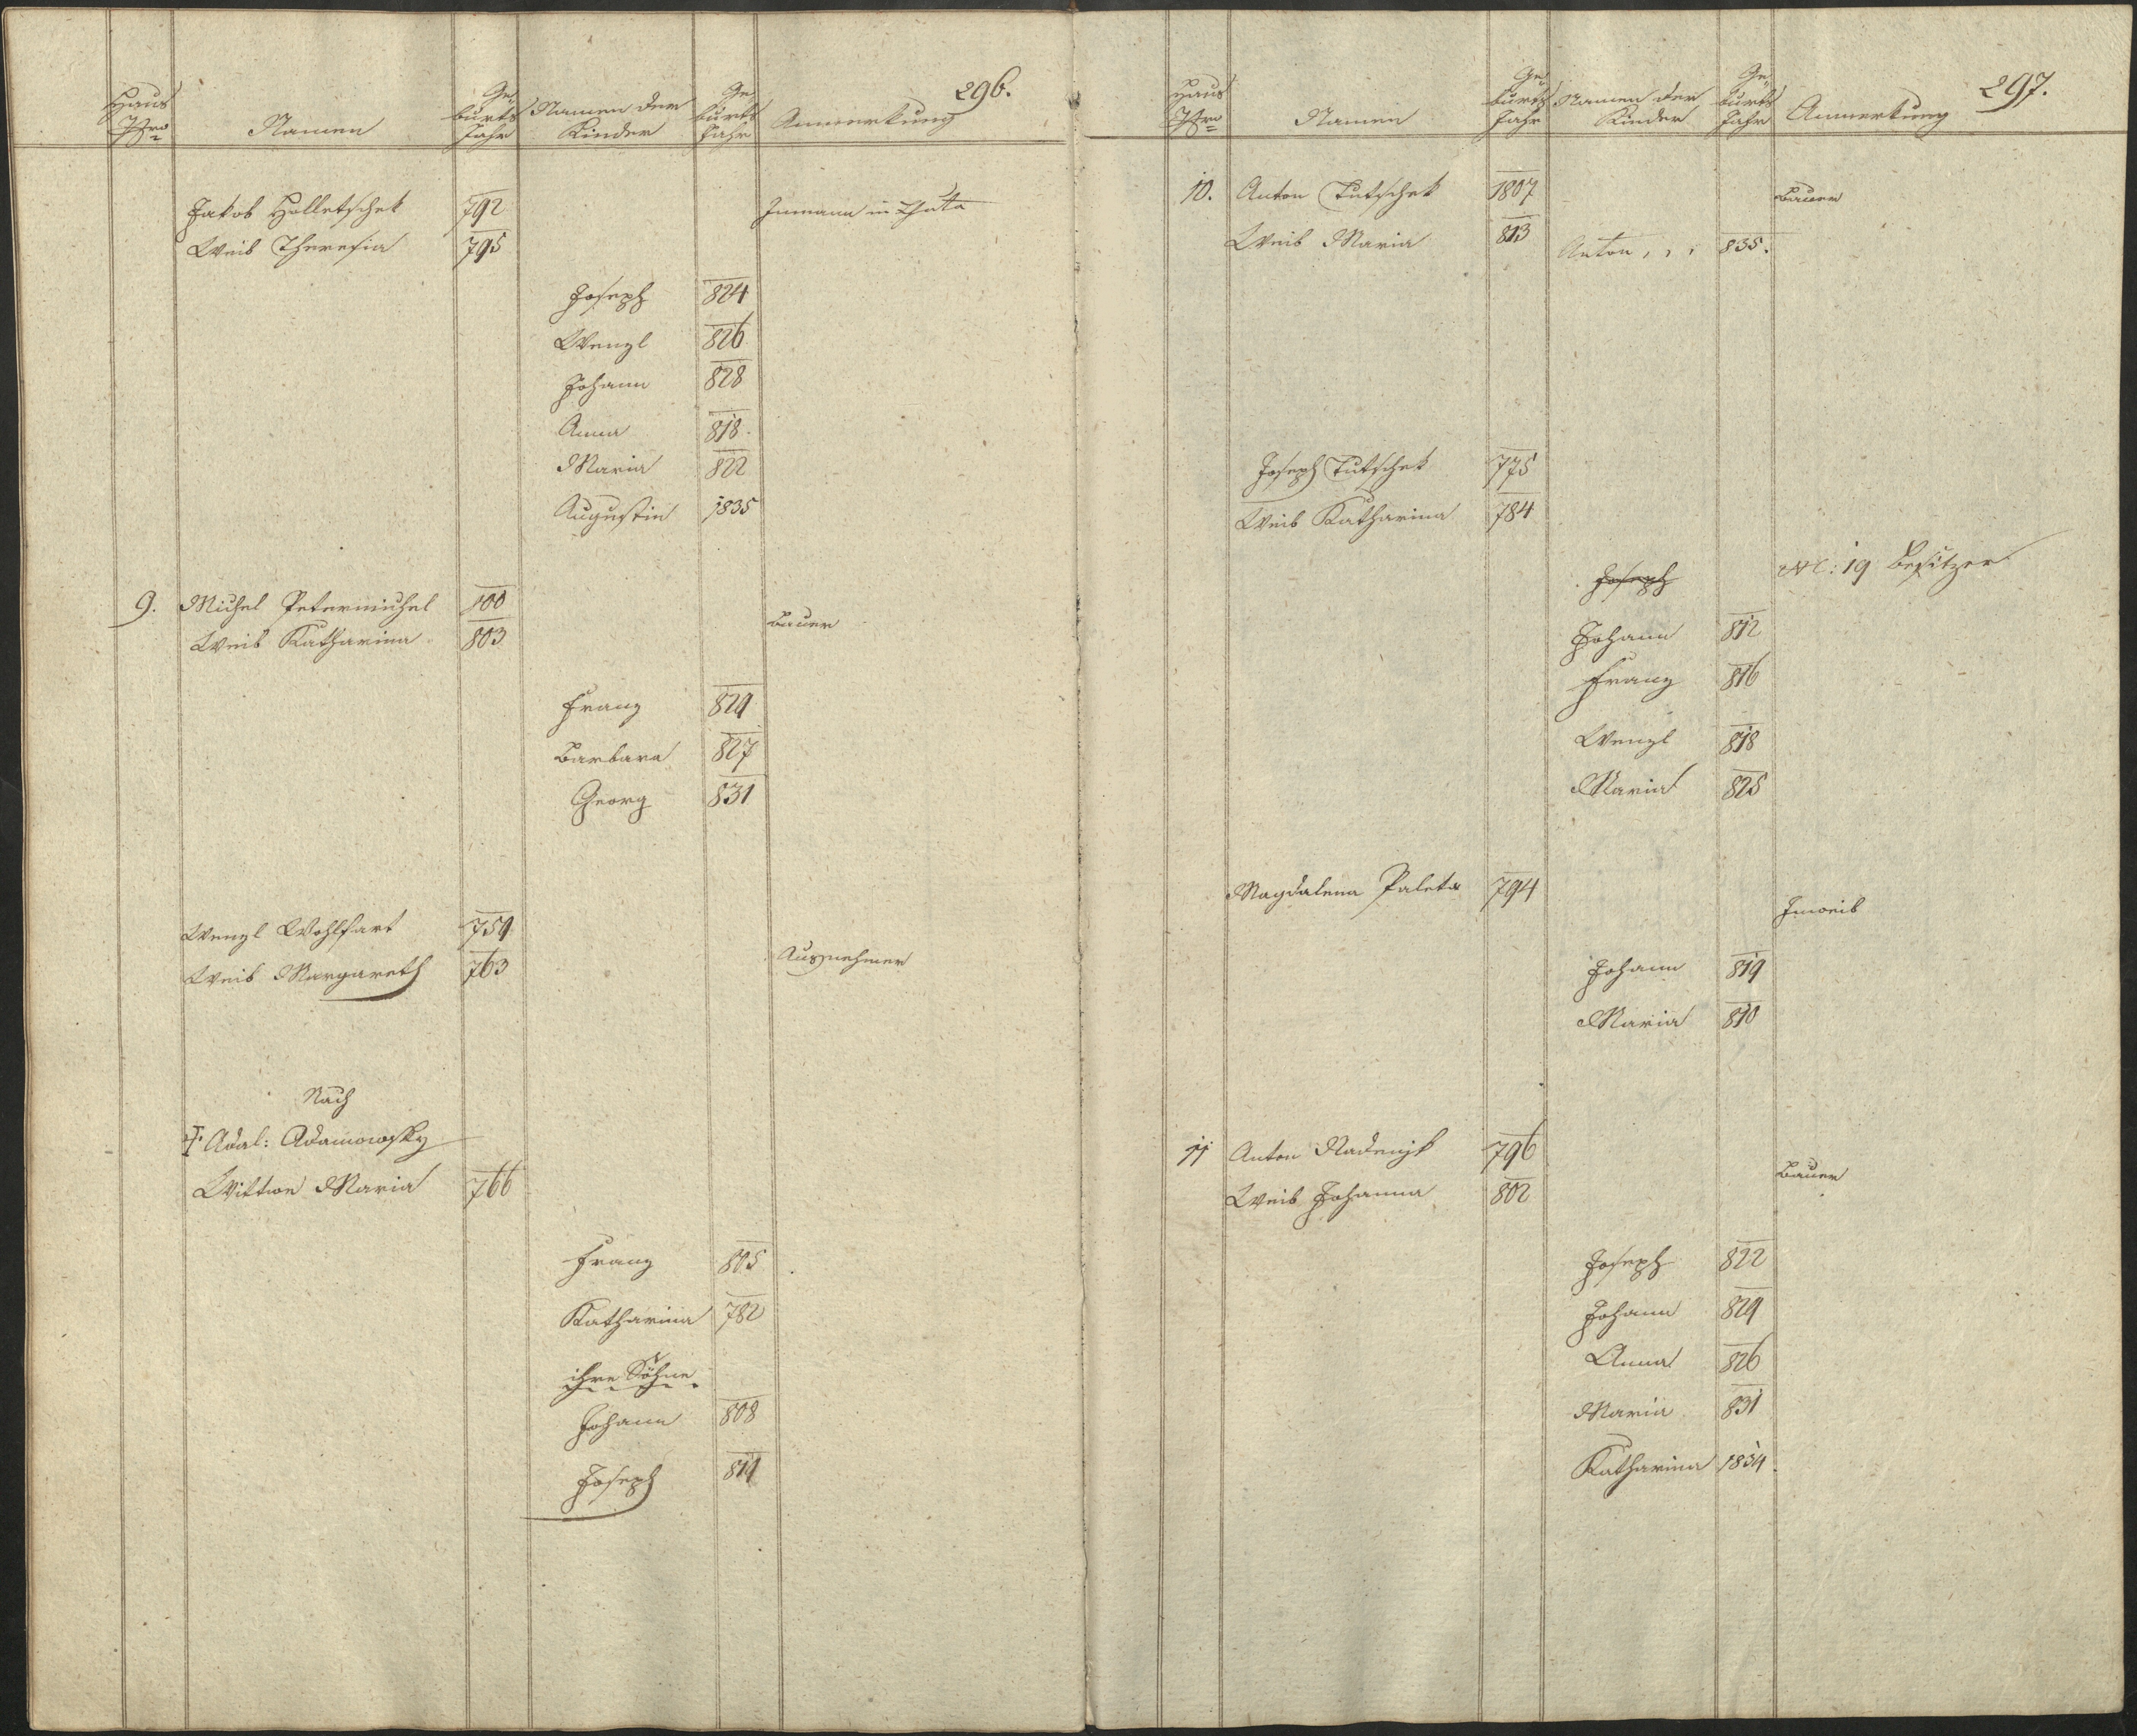 296.
Haus Nro
Namen
Geburts Jahr
Namen der Kinder
Geburts Jahr
Anmerkung
Jakob Holletschek 792 Inmann in
Weib Theresia 795
Joseph 824
Wenzl 826
Johann 828
Anna 818.
Maria 822
Augustin 1835
9. Michel Petermichel 800
Bauer
Weib Katharina 803
Franz 824
Barbara 827
Georg 831
Wenzl Wohlfart 754
Ausnehmer
Weib Margareth 763
Nach
† Adal: Adamowsky
Wittwe Maria 766
Franz 805
Katharina 782
ihre Söhne
Johann 808
Joseph 814
297.
Haus Nro
Namen
Geburts Jahr
Namen der Kinder
Geburts Jahr
Anmerkung
10. Anton Tutschek 1807 Bauer
Weib Maria 813
Anton 835.
Joseph Tutschek 775
Weib Katharina 784
Joseph NC: 19 Besitzer
Johann 812
Franz 816
Wenzl 818
Maria 825
Magdalena Paleta 794
Inweib
Johann 819
Maria 810
11 Anton 796
Bauer
Weib Johanna 802
Joseph 822
Johann 824
Anna 826
Maria 831
Katharina 1834.